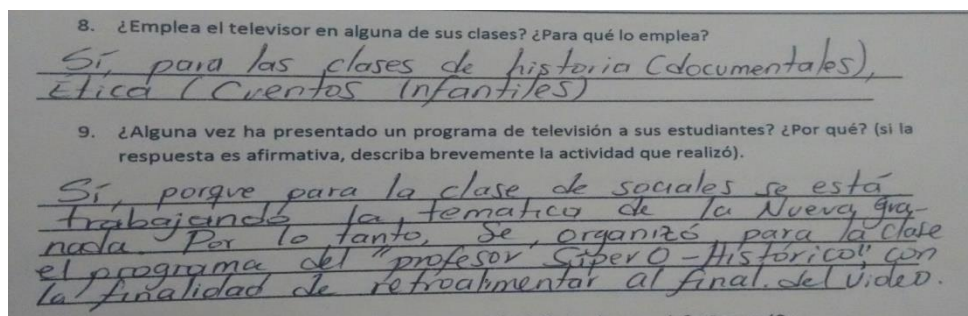 8. ¿Emplea el televisor en alguna de sus clases? ¿Para qué lo emplea?
Sí, para las clases de historia (documentales),
Etica (Cuentos Infantiles)
9. ¿Alguna vez ha presentado un programa de televisión a sus estudiantes? ¿Por qué? (si la
respuesta es afirmativa, describa brevemente la actividad que realizó).
Sí, porque para la clase de sociales se está
trabajando la tematica de la Nueva Gra-
nada. Por lo tanto, se organizó para la clase
el programa del "profesor Súper O - Histórico" con
la finalidad de retroalimentar al final del video.